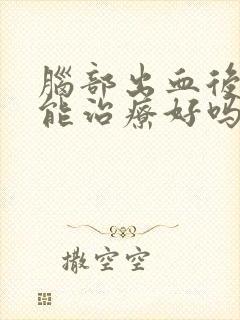 腦部出血後
能治療好嗎
撒空空